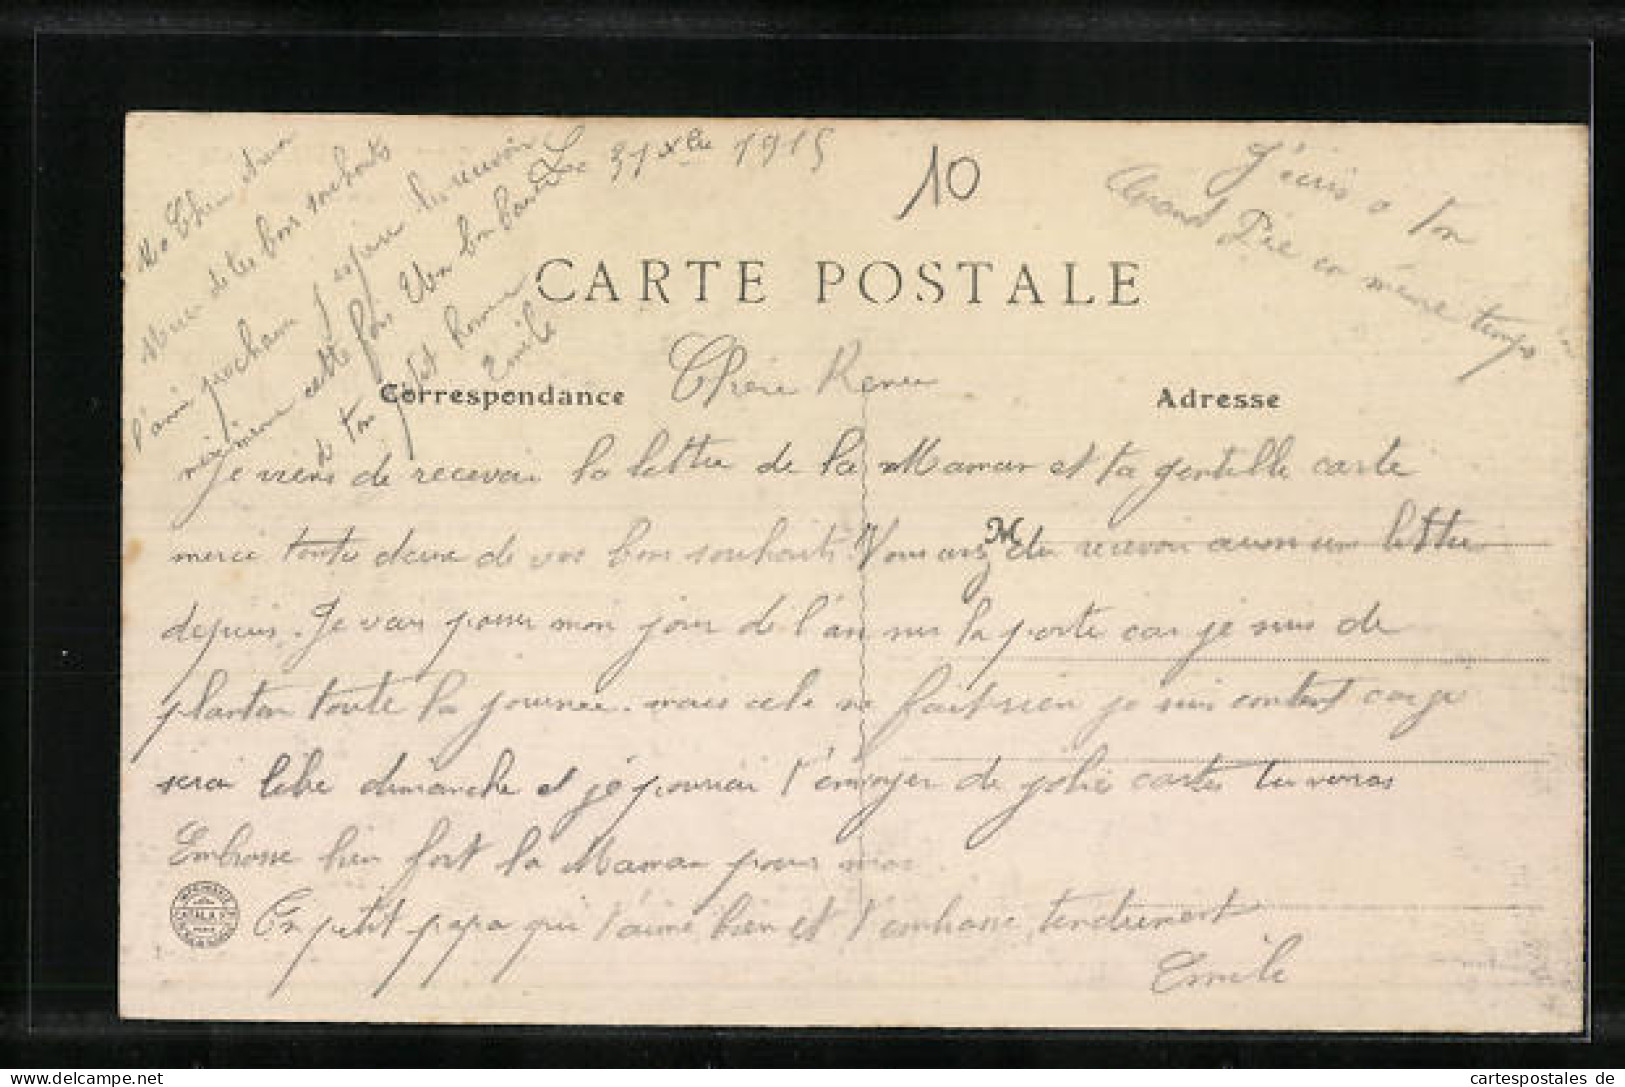 Le 31 xbre 1915
10
J'écris a ton
Grand Père en même temps
Ma Chère
Merci de tes bons souhaits
l'année prochaine j'espère les recevoir
cette fois Un bon baiser
de ton petit homme
Emile
CARTE POSTALE
Correspondance
Adresse
Chère Renee
je viens de recevoir la lettre de la Maman et ta gentille carte
merci toute deux de vos bons souhaits Vous avez du recevoir aussi une lettre
depuis. Je vais passer mon jour de l'an sur la porte car je suis de
planton toute la journee. mais cela ne fait rien je suis content car je
serai libre dimanche et je pourrai t'envoyer de jolie cartes tu verras
Embrasse bien fort la Maman pour moi
Ton petit papa qui t'aime bien et t'embrasse tendrement
Emile
cartespostales de